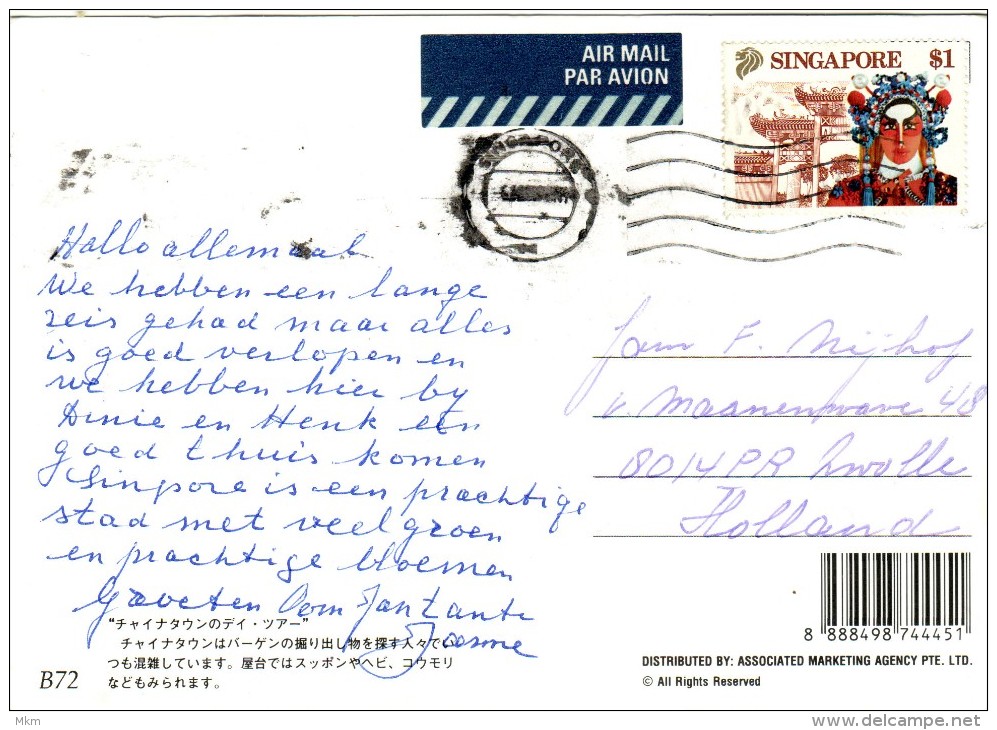 AIR MAIL
PAR AVION
SINGAPORE $1
SINGAPORE
Hallo allemaal
We hebben een lange
reis gehad maar alles
is goed verlopen en
we hebben hier by
Dinie en Henk een
goed thuis komen
Singpore is een prachtige
stad met veel groen
en prachtige bloemen
Groeten Oom Jan Tante
Fam F. Nijhof
v. Maanenwave 48
8014 PR Zwolle
Holland
"チャイナタウンのデイ・ツアー"
チャイナタウンはバーゲンの掘り出し物を探す人々でい
つも混雑しています。屋台ではスッポンやヘビ、コウモリ
などもみられます。
B72
8 888498 744451
DISTRIBUTED BY: ASSOCIATED MARKETING AGENCY PTE. LTD.
© All Rights Reserved
Mkm
delcampe.net